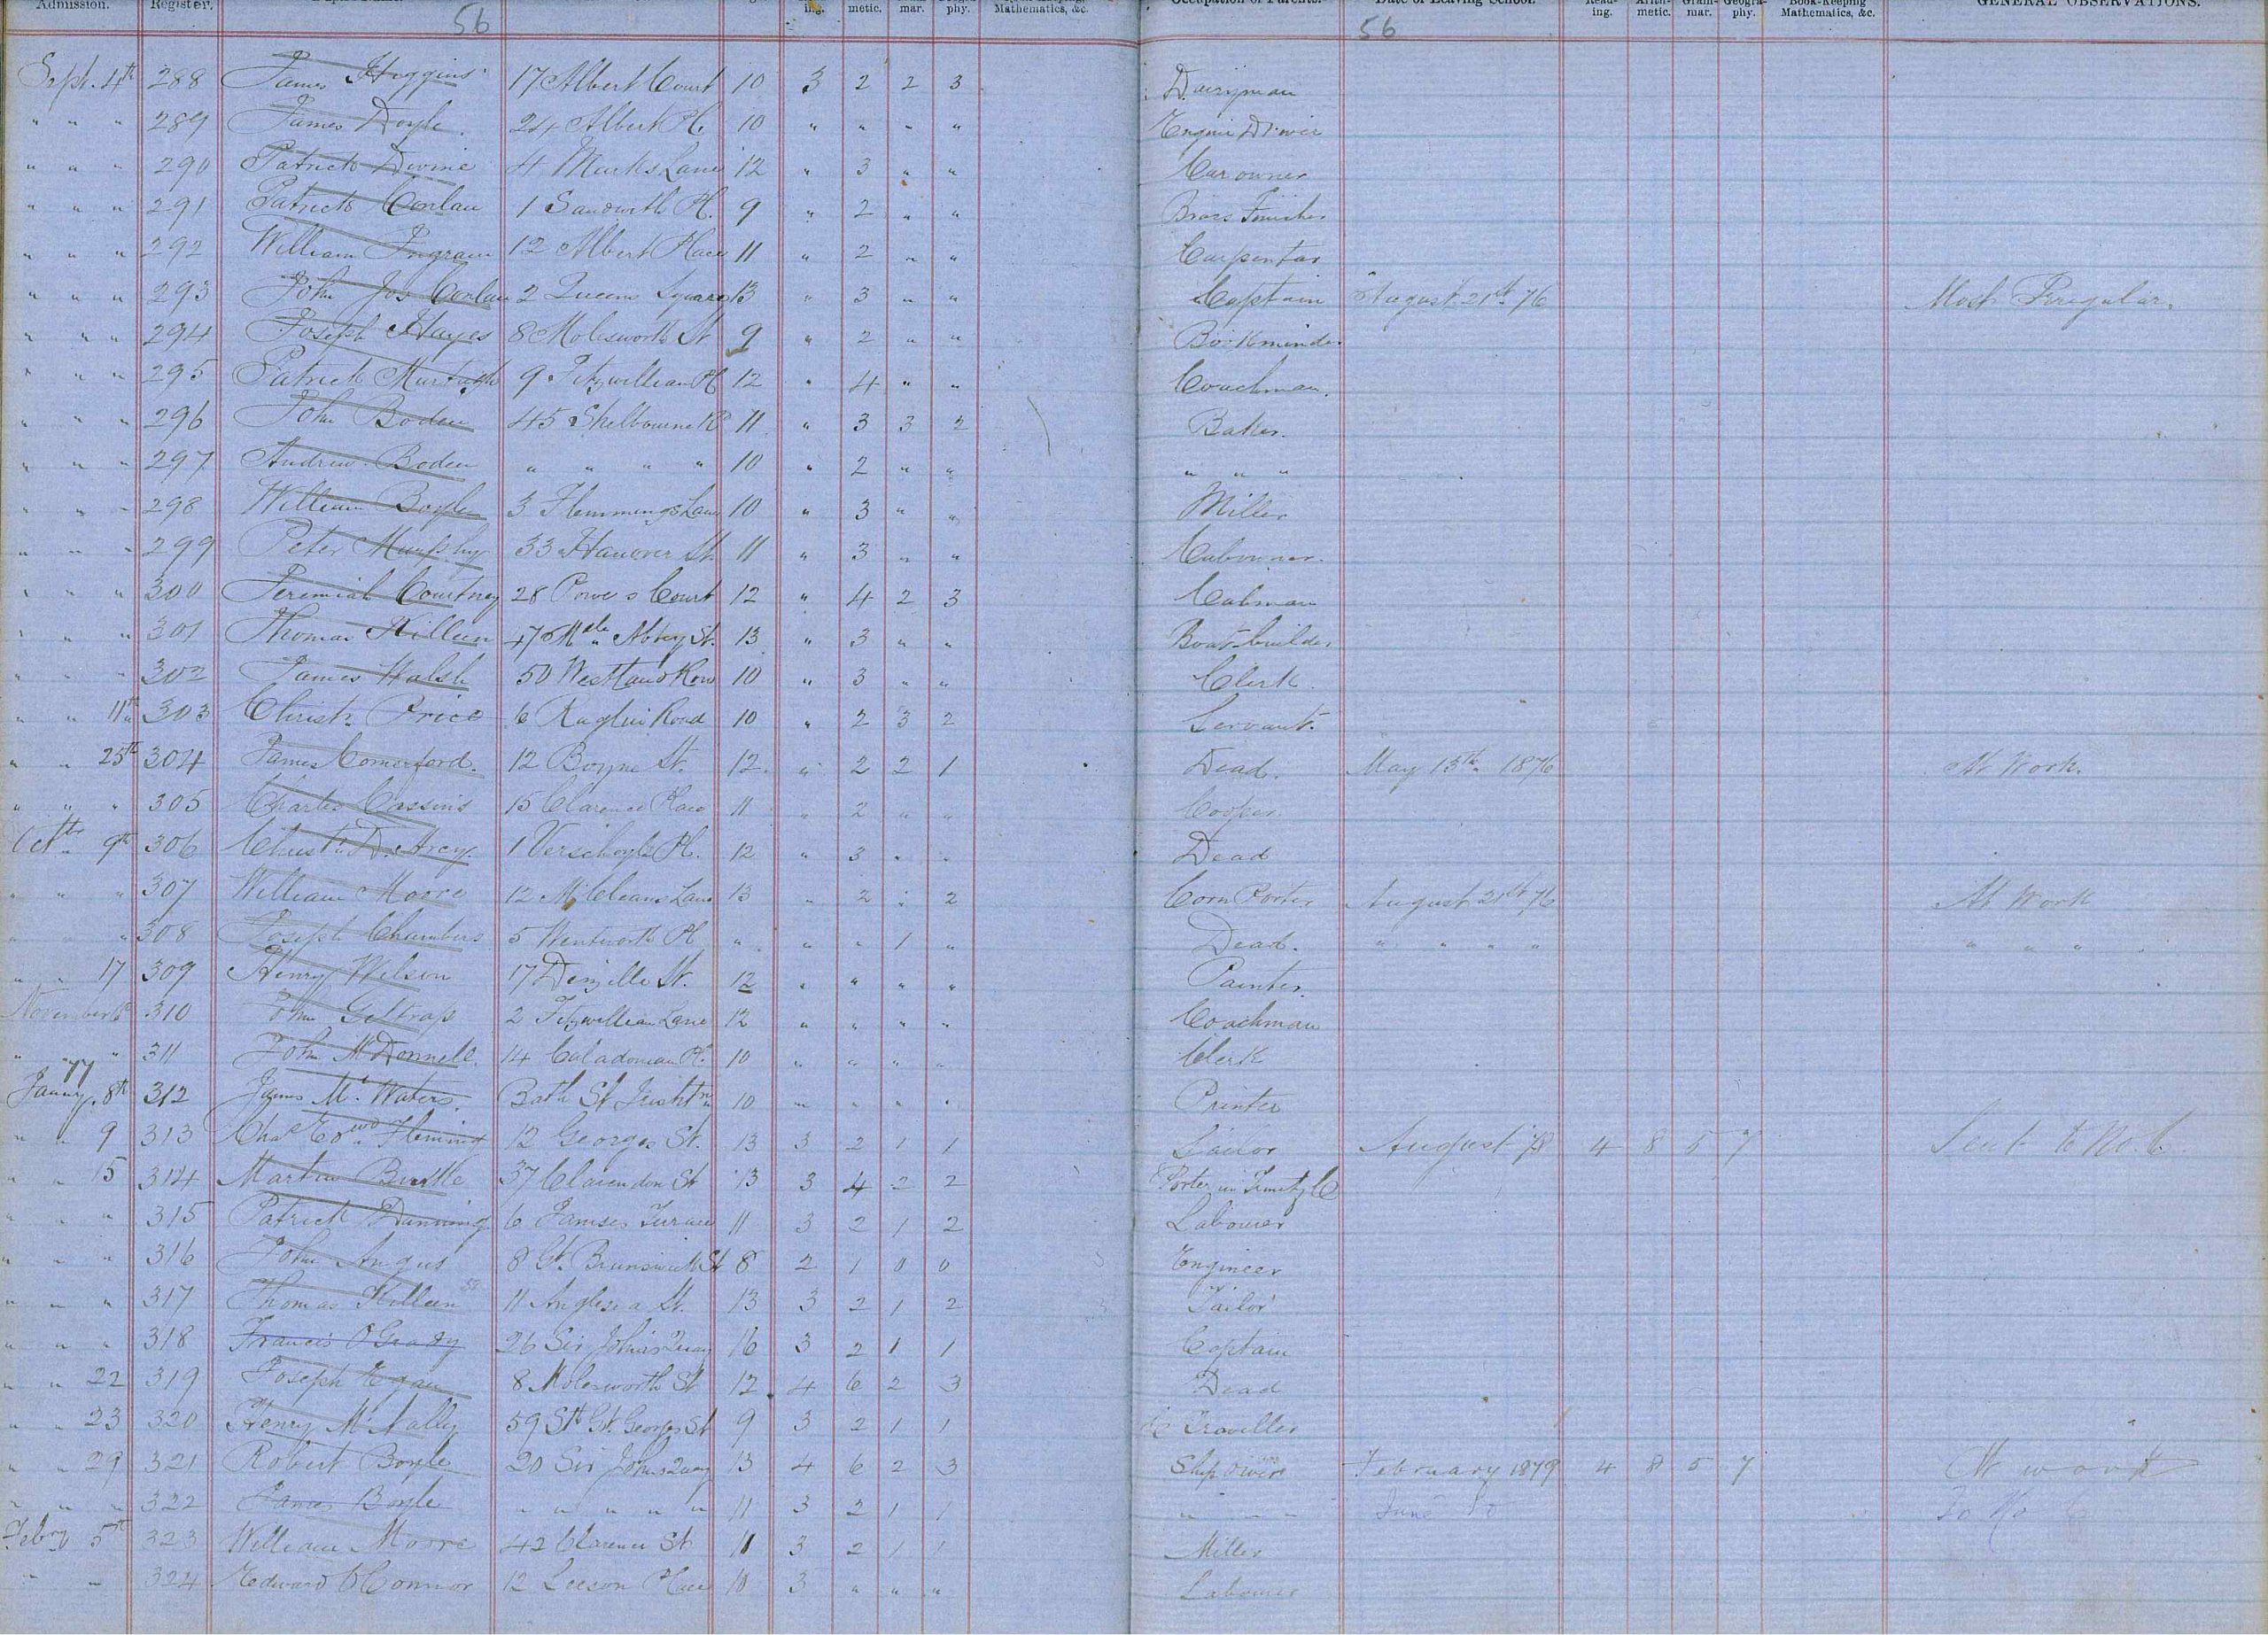 Admission. Register. ing. metic. mar. phy. Mathematics, &c. Occupation of Parents. Date of Leaving School. Read-ing. Arith-metic. Gram-mar. Geogra-phy. Book-Keeping Mathematics, &c. GENERAL OBSERVATIONS.
56 56
Sept. 4th 288 James Huggins 17 Albert Court 10 3 2 2 3 Dairyman
" " " 289 James Doyle 24 Albert Pl. 10 " " " " Engine Driver
" " " 290 Patrick Divine 4 Marks Lane 12 " 3 " " Car owner
" " " 291 Patrick Conlan 1 Sandwith Pl. 9 " 2 " " Brass Finisher
" " " 292 William Ingram 12 Albert Place 11 " 2 " " Carpenter
" " " 293 John Jos Conlan 2 Queens Square 13 " 3 " " Captain August 21st 76 Most Irregular.
" " " 294 Joseph Hayes 8 Molesworth St 9 " 2 " "
" " " 295 Patrick Murtagh 9 Fitzwilliam Pl 12 " 4 " " Coachman.
" " " 296 John Boden 45 Shelbourne Rd 11 " 3 3 2 Baker.
" " " 297 Andrew Boden " " " " 10 " 2 " " " " "
" " " 298 William Boyle 3 Flemmings Lane 10 " 3 " " Miller
" " " 299 Peter Murphy 33 Hanover St. 11 " 3 " " Cabowner.
" " " 300 Jeremiah Courtney 28 Powers Court 12 " 4 2 3 Cabman
" " " 301 Thomas Killeen 47 Mdle Abbey St. 13 " 3 " " Boat-builder
" " " 302 James Walsh 50 Westland Row 10 " 3 " " Clerk.
" " 11th 303 Christr. Price 6 Raglan Road 10 " 2 3 2 Servant.
" " 25th 304 James Comerford. 12 Boyne St. 12. " 2 2 1 Dead. May 15th 1876 At Work.
" " " 305 Charles Cassins 15 Clarence Place 11 " 2 " " Cooper
Octbr 9th 306 Christr. D'Arcy. 1 Verschoyle Pl. 12 " 3 " " Dead
" " " 307 William Moore 12 McCleans Lane 13 " 2 " 2 Corn Porter August 21st 76 At Work
" " " 308 Joseph Chambers 5 Wentworth Pl " " " 1 " Dead. " " " " " " "
" " 17 309 Henry Wilson 17 Denzille St. 12 " " " " Painter.
November 310 John Geltrap 2 Fitzwilliam Lane 12 " " " " Coachman
" " " 311 John McDonnell 14 Caladonian Pl. 10 " " " " Clerk
77
Januy. 8th 312 James Mc. Waters. Bath St Irishtn 10 " " " " Printer
" " 9 313 Chas Edwd. Fleming 12 Georges St. 13 3 2 1 1 Sailor August 78 4 8 5 7 Sent to No. 6.
" " 15 314 Martin Burke 37 Clarendon St 13 3 4 2 2 Porter in
" " " 315 Patrick Dunning 6 Jamses Terrace 11 3 2 1 2 Labourer
" " " 316 John Angus 8 Gt. Brunswick St 8 2 1 0 0 Engineer
" " " 317 Thomas Killeen 11 Anglesea St. 13 3 2 1 2 Tailor
" " " 318 Francis O'Grady 26 Sir John's Quay 16 3 2 1 1 Captain
" " 22 319 Joseph Egan 8 Molesworth St 12 4 6 2 3 Dead
" " 23 320 Henry McNally 59 Sth. Gt. Georges St 9 3 2 1 1 Traviller
" " 29 321 Robert Boyle 20 Sir Johns Quay 13 4 6 2 3 Ship Owner February 1879 4 8 5 7 At work
" " " 322 James Boyle " " " " " 11 3 2 1 1 " " " June To No 6
Febry 5th 323 William Moore 42 Clarence St 11 3 2 1 1 Miller
" " 324 Edward O'Connor 12 Leeson Place 10 3 " " " Labourer